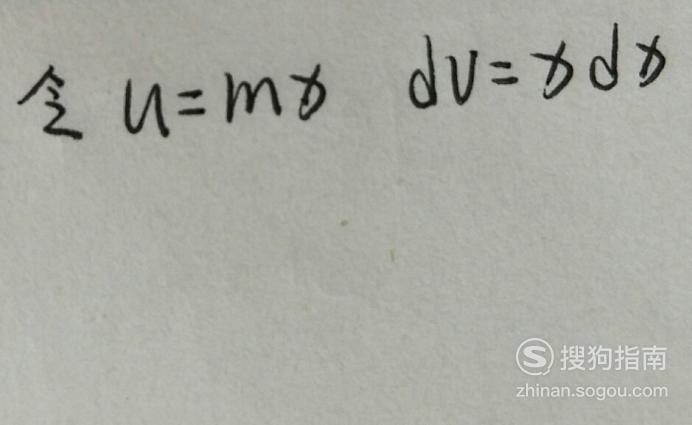 令 u=mx dv=xdx
搜狗指南
zhinan.sogou.com